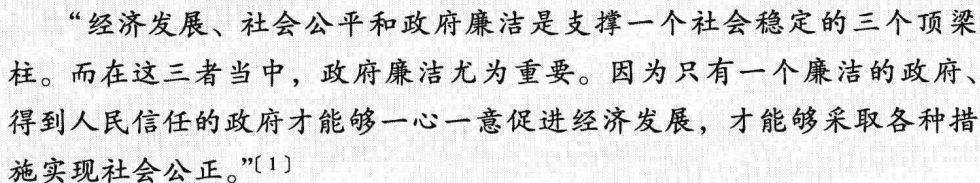 “经济发展、社会公平和政府廉洁是支撑一个社会稳定的三个顶梁
柱。而在这三者当中，政府廉洁尤为重要。因为只有一个廉洁的政府、
得到人民信任的政府才能够一心一意促进经济发展，才能够采取各种措
施实现社会公正。”〔1〕